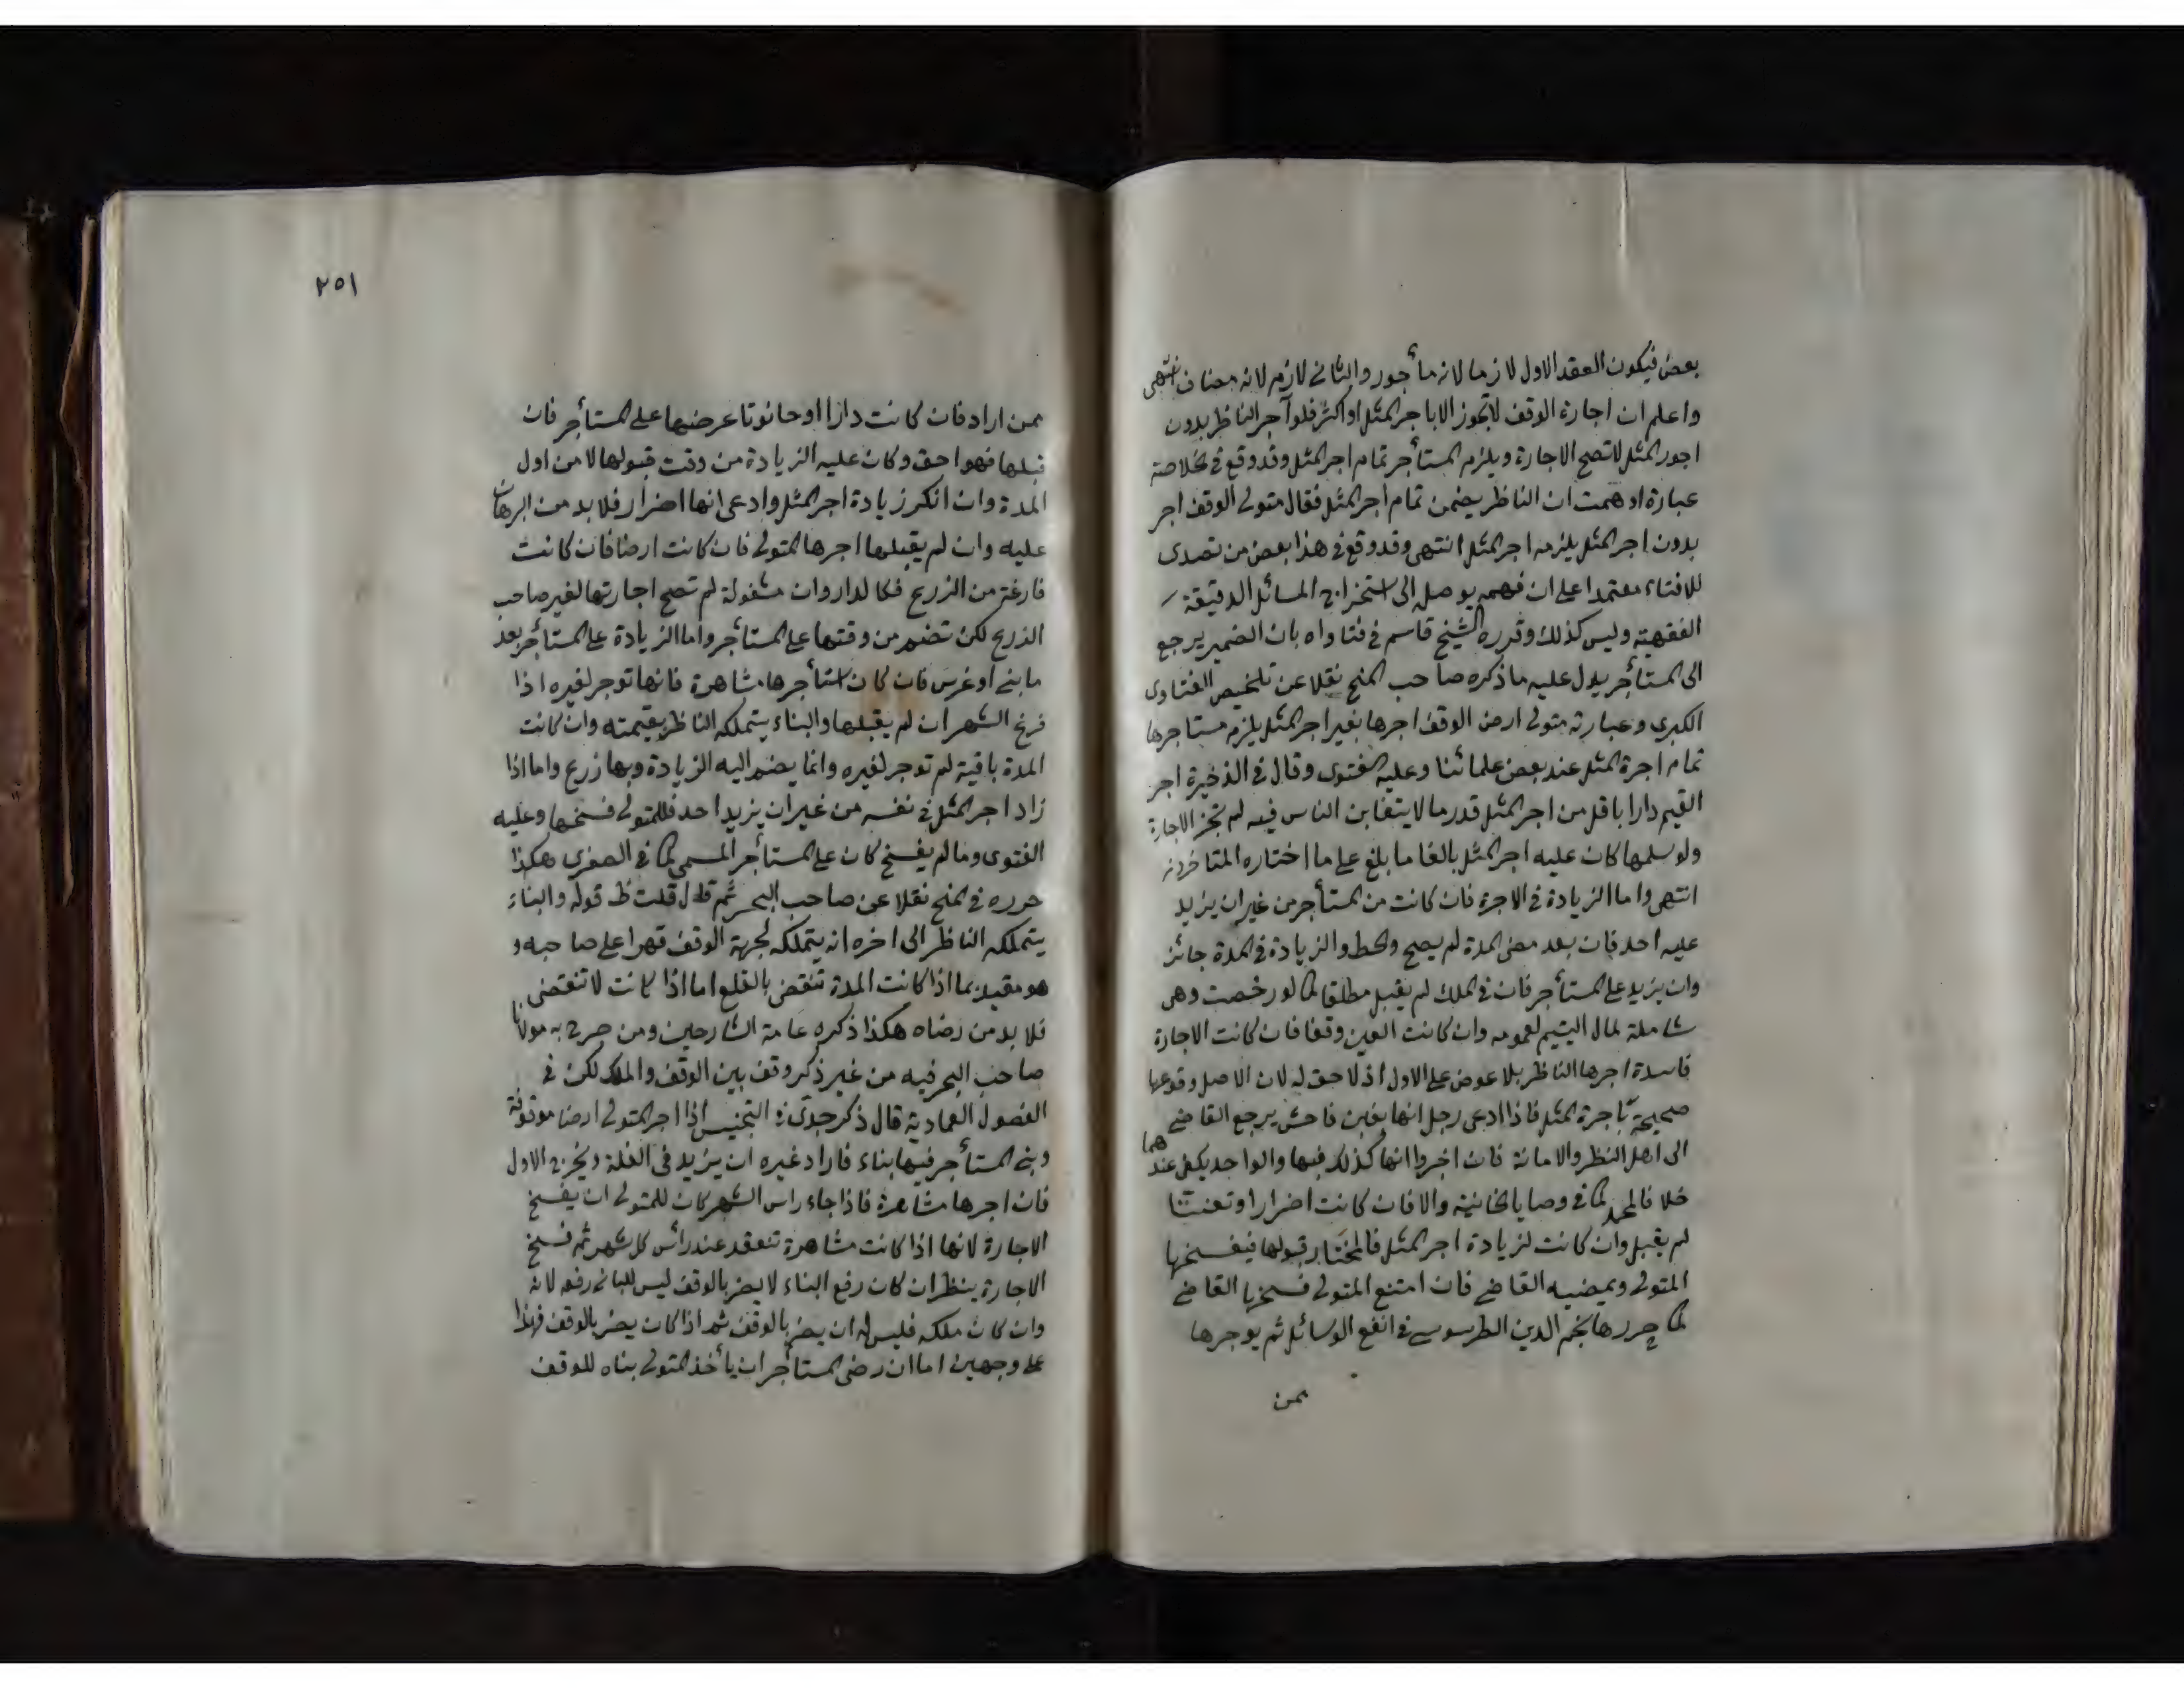 بعض فيكون العقد الاول لازما لانه مأجور والثاني لازم لانه مضاف انتهى
واعلم ان اجارة الوقف لا تجوز الا باجر المثل او اكثر فلو آجر الناظر بدون
اجور المثل لا تصح الاجارة ويلزم المستأجر تمام اجر المثل وقد وقع في الخلاصة
عبارة اوهمت ان الناظر يضمن تمام اجر المثل فقال متولى الوقف اجر
بدون اجر المثل يلزمه اجر المثل انتهى وقد وقع في هذا بعض من تصدى
للافتاء معتمدا على ان فهمه يوصله الى استخراج المسائل الدقيقة
الفقهية وليس كذلك وقرره الشيخ قاسم في فتاواه بان الضمير يرجع
الى المستأجر يدل عليه ما ذكره صاحب المنح نقلا عن تلخيص الفتاوى
الكبرى وعبارته متولى ارض الوقف اجرها بغير اجر المثل يلزم مستاجرها
تمام اجرة المثل عند بعض علمائنا وعليه الفتوى وقال في الذخيرة اجر
القيم دارا باقل من اجر المثل قدر ما لا يتغابن الناس فيه لم تجز الاجارة
ولو سلمها كان عليه اجر المثل بالغا ما بلغ على ما اختاره المتاخرون
انتهى واما الزيادة في الاجرة فان كانت من المستأجر من غير ان يزيد
عليه احد فان بعد مضى المدة لم يصح والحط والزيادة في المدة جائز
وان يزيد على المستأجر فان في الملك لم يقبل مطلقا كما لو رخصت وهى
شاملة لمال اليتيم لعمومه وان كانت العين وقفا فان كانت الاجارة
فاسدة اجرها الناظر بلا عوض على الاول اذ لا حق له لان الاصل وقوعها
صحيحة باجرة المثل فاذا ادعى رجل انها بغبن فاحش يرجع القاضي
الى اهل النظر والامانة فان اخبروا انها كذلك فيها والواحد يكفى عندهما
خلافا لمحمد كما في وصايا الخانية والا فان كانت اضرارا وتعنتا
لم يقبل وان كانت لزيادة اجر المثل فالمختار قبولها فيفسخها
المتولى ويمضيه القاضي فان امتنع المتولى فسخها القاضي
كما حررها نجم الدين الطرسوسي في انفع الوسائل ثم يوجرها
ممن
٢٥١
ممن اراد فان كانت دارا او حانوتا عرضها على المستأجر فان
قبلها فهو احق وكان عليه الزيادة من وقت قبولها لا من اول
المدة وان انكر زيادة اجر المثل وادعى انها اضرار فلا بد من البرهان
عليه وان لم يقبلها اجرها المتولى فان كانت ارضا فان كانت
فارغة من الزرع فكالدار وان مشغولة لم تصح اجارتها لغير صاحب
الزرع لكن تضم من وقتها على المستأجر واما الزيادة على المستأجر بعد
ما بنى او غرس فان كان استأجرها مشاهرة فانها توجر لغيره اذا
فرغ الشهر ان لم يقبلها والبناء يتملكه الناظر بقيمته وان كانت
المدة باقية لم توجر لغيره وانما يضم اليه الزيادة وبها زرع واما اذا
زاد اجر المثل في نفسه من غير ان يزيد احد فللمتولى فسخها وعليه
الفتوى وما لم يفسخ كان على المستأجر المسمى كما في الصغرى هكذا
حرره في المنح نقلا عن صاحب البحر ثم قال قلت ظ قوله والبناء
يتملكه الناظر الى اخره انه يتملكه لجهة الوقف قهرا على صاحبه و
هو مقيد بما اذا كانت المدة تنقص بالقلع اما اذا كانت لا تنقص
فلا بد من رضاه هكذا ذكره عامة الشارحين ومن صرح به مولانا
صاحب البحر فيه من غير ذكر وقف بين الوقف والملك لكن في
الفصول العمادية قال ذكر جدى في التجنيس اذا اجر المتولى ارضا موقوفة
وبنى المستأجر فيها بناء فاراد غيره ان يزيد فى الغلة ويخرج الاول
فان اجرها مشاهرة فاذا جاء راس الشهر كان للمتولى ان يفسخ
الاجارة لانها اذا كانت مشاهرة تنعقد عند رأس كل شهر ثم فسخ
الاجارة ينظر ان كان رفع البناء لا يضر بالوقف ليس للبانى رفعه لانه
وان كان ملكه فليس له ان يضر بالوقف ثم اذا كان يضر بالوقف فهذا
على وجهين اما ان رضى المستأجر ان يأخذ المتولى بناه للوقف